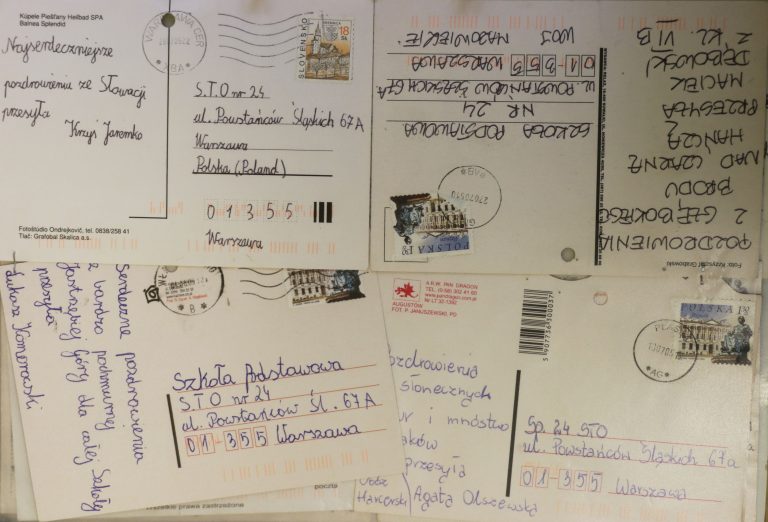 Kúpele Piešťany Heilbad SPA
Balnea Splendid
Najserdeczniejsze
pozdrowienia ze Słowacji
przesyła
Krzyś Jaremko
Fotoštúdio Ondrejkovič, tel. 0838/258 41
Tlač: Grafobal Skalica a.s.
WARSZAWA
SLOVENSKO
18
SK
S.T.O nr 24
ul. Powstańców Śląskich 67A
Warszawa
Polska (Poland)
01355
Warszawa
SZKOŁA PODSTAWOWA
NR 24
UL. POWSTAŃCÓW ŚLĄSKICH 67A
01-355 WARSZAWA
WOJ. MAZOWIECKIE
POLSKA
270705
POZDROWIENIA
Z GŁĘBOKIEGO
BRODU
NAD CZARNĄ
HAŃCZĄ
PRZESYŁA
MACIEK
DĘBOWSKI
Z KL. VI B
Foto: Krzysztof Grabowski
Serdeczne pozdrowienia
z bardzo pochmurnej
Jastrzębiej Góry dla całej Szkoły
przesyła
Łukasz Komorowski
Szkoła Podstawowa
S.T.O nr 24
ul. Powstańców Śl. 67A
01-355 Warszawa
poczta
Wszelkie prawa zastrzeżone
A.R.W. PAN DRAGON
www.pandragon.com.pl
AUGUSTÓW
FOT. P. JANUSZEWSKI, PD
5907736300037
POLSKA
Pozdrowienia
słonecznych
i mnóstwo
przesyła
Agata Olszewska
Sp. 24 STO
ul. Powstańców Śląskich 67a
01-355 Warszawa